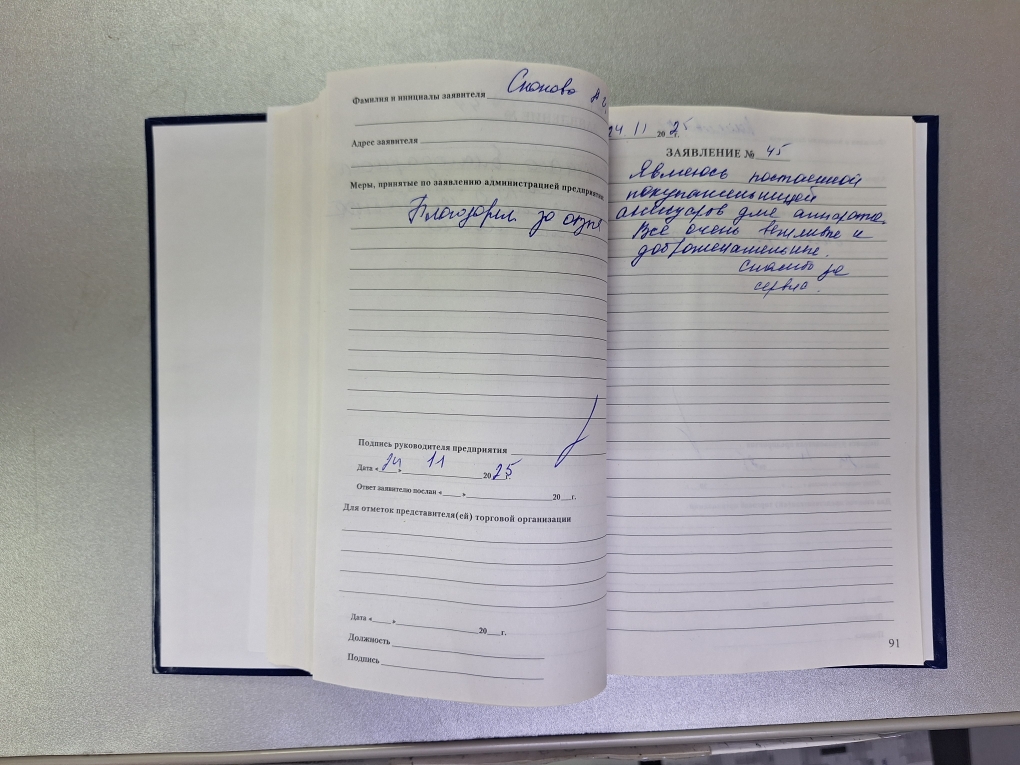 Фамилия и инициалы заявителя
Адрес заявителя
Меры, принятые по заявлению администрацией предприятия
Благодарим за
Подпись руководителя предприятия
Дата «24» 11 2025г.
Ответ заявителю послан «___»___ 20__г.
Для отметок представителя(ей) торговой организации
Дата «___»___ 20__г.
Должность
Подпись
24 11 2025г.
ЗАЯВЛЕНИЕ № 45
Являюсь постоянной
покупательницей
аксессуаров для аппарата.
Все очень вежливые и
доброжелательные.
Спасибо за
сервис.
91